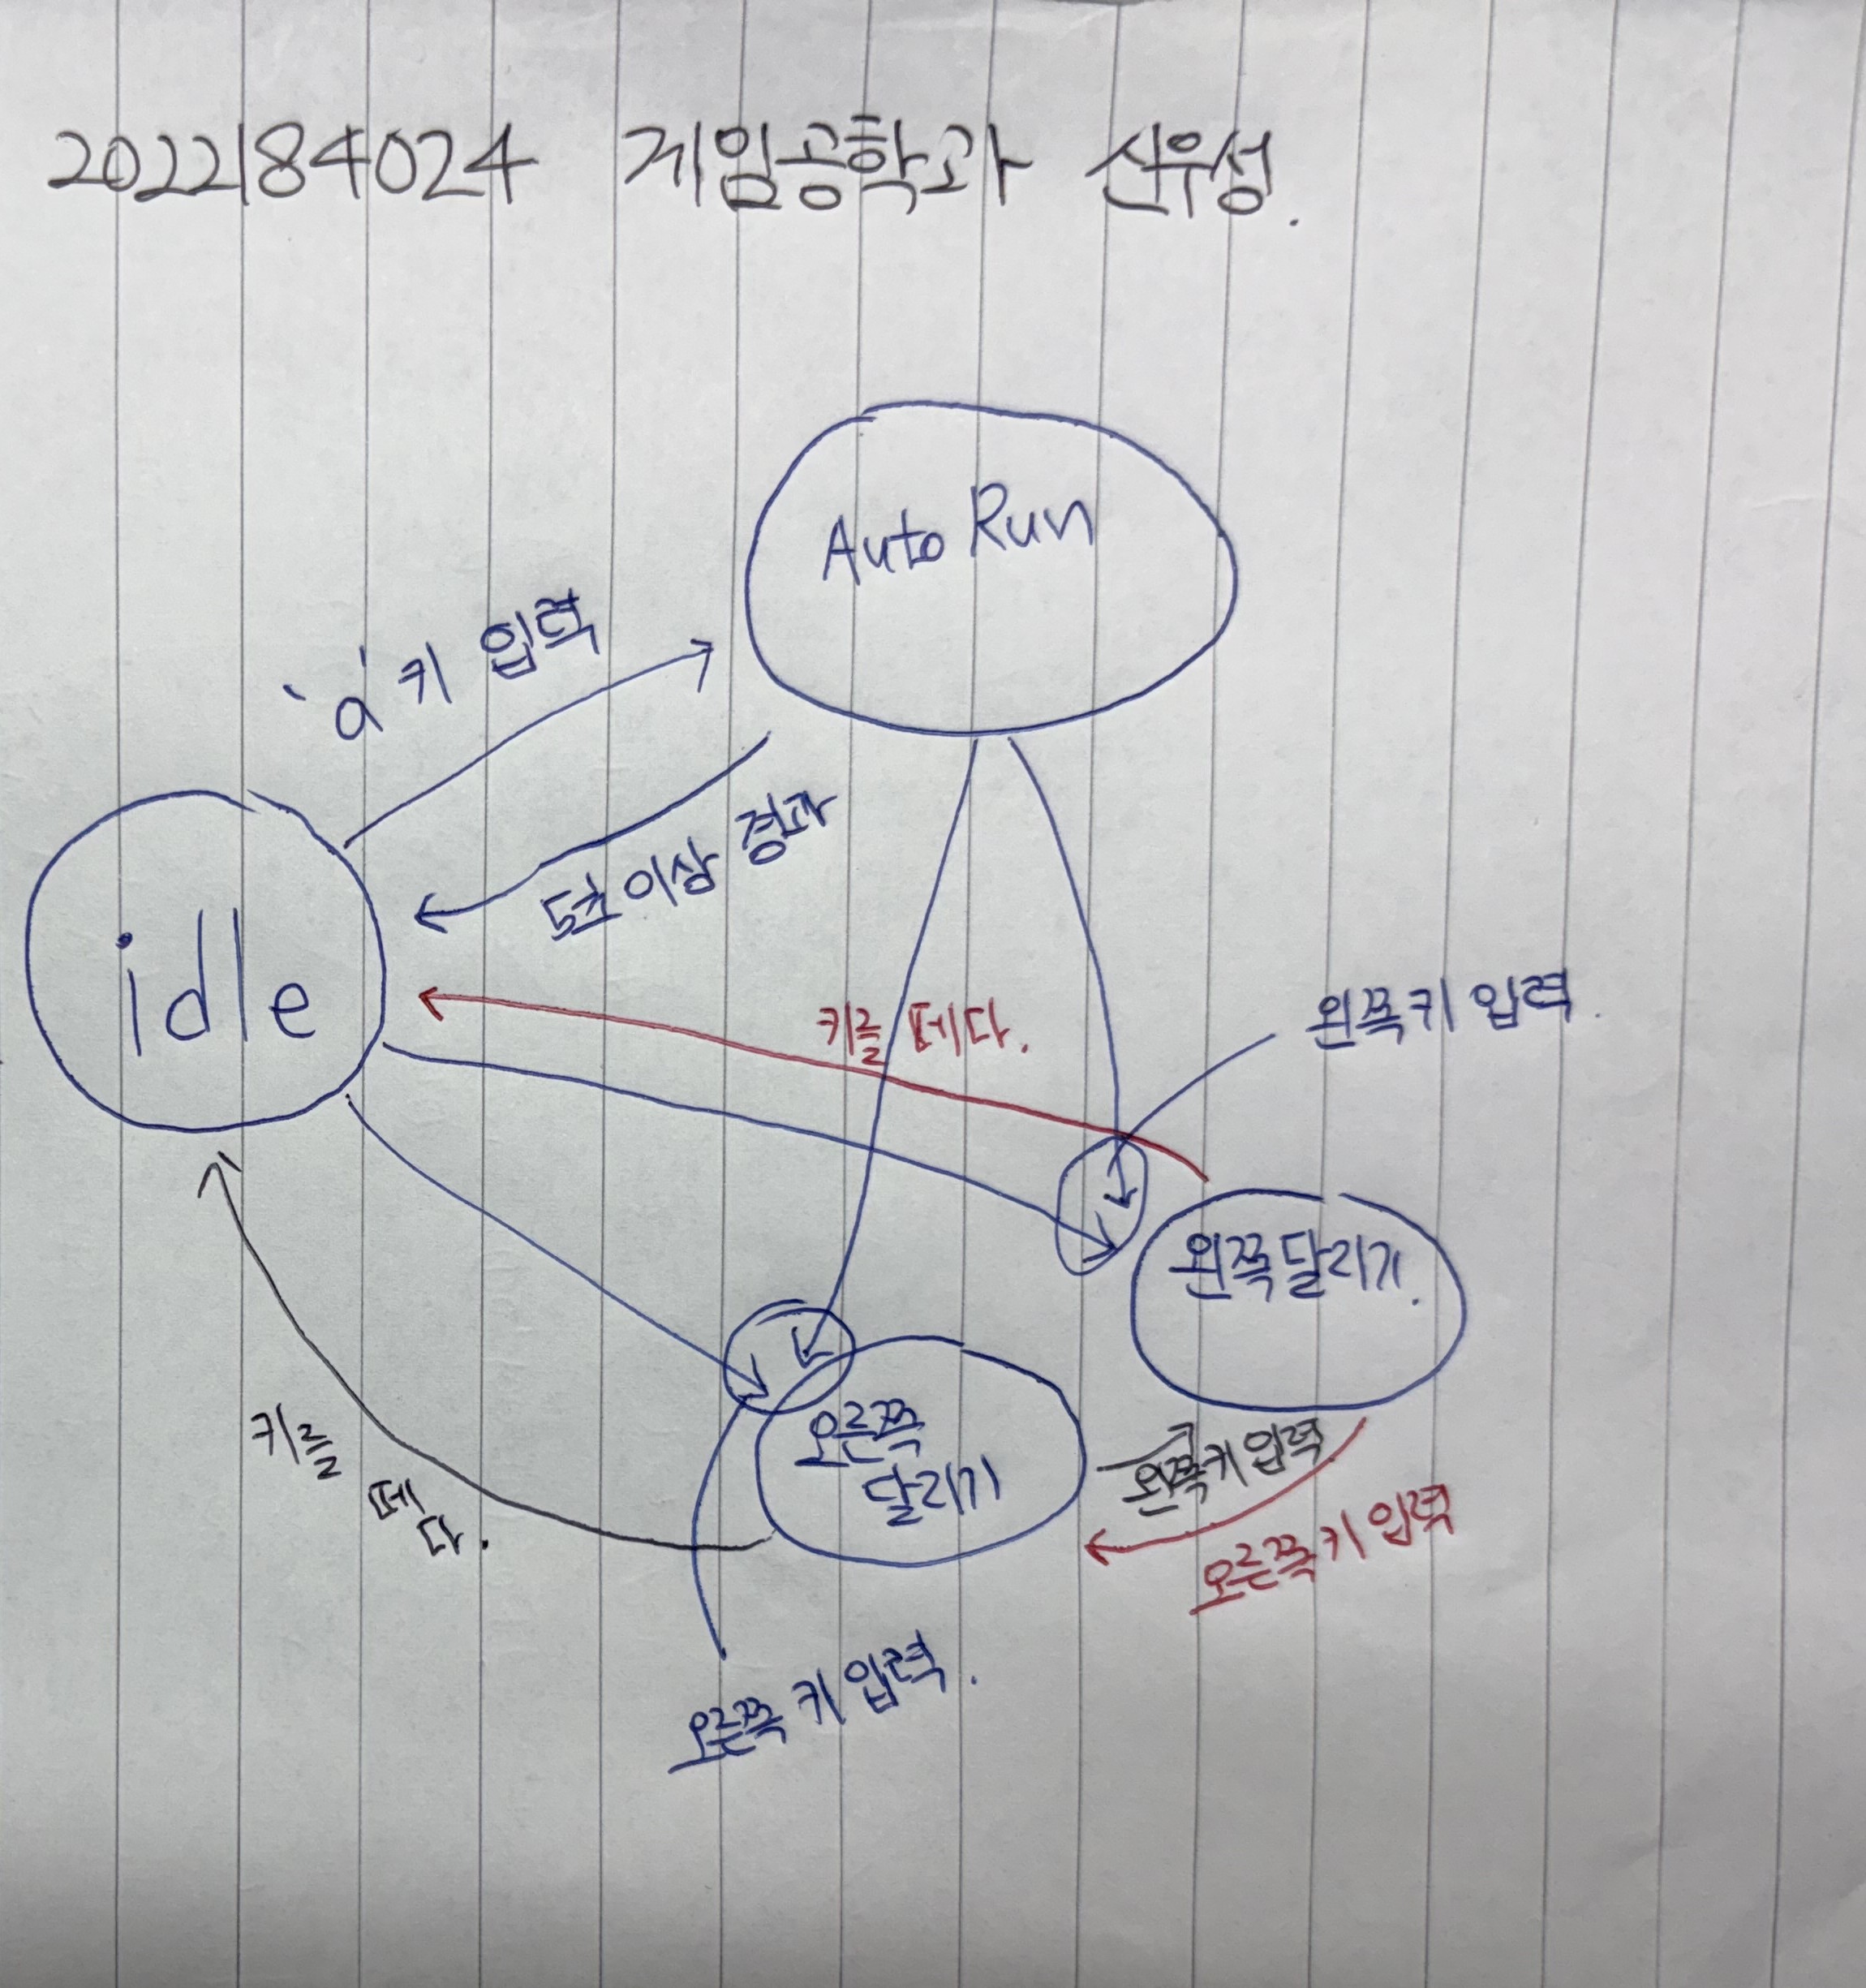 2022184024 게임공학과 신우성.
Auto Run
'a' 키 입력
5초 이상 경과
idle
키를 떼다.
왼쪽 키 입력.
왼쪽 달리기.
오른쪽
달리기
왼쪽 키 입력
오른쪽 키 입력
키를
떼
다.
오른쪽 키 입력.